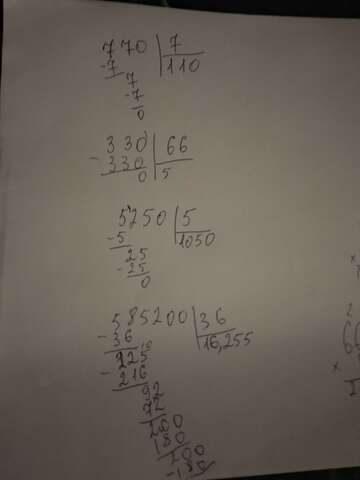 770 7
-7 110
7
-7
0
330 66
-330 5
0
5250 5
-5 1050
25
-25
0
585200 36
-36 16,255
225
-216
92
72
200
180
200